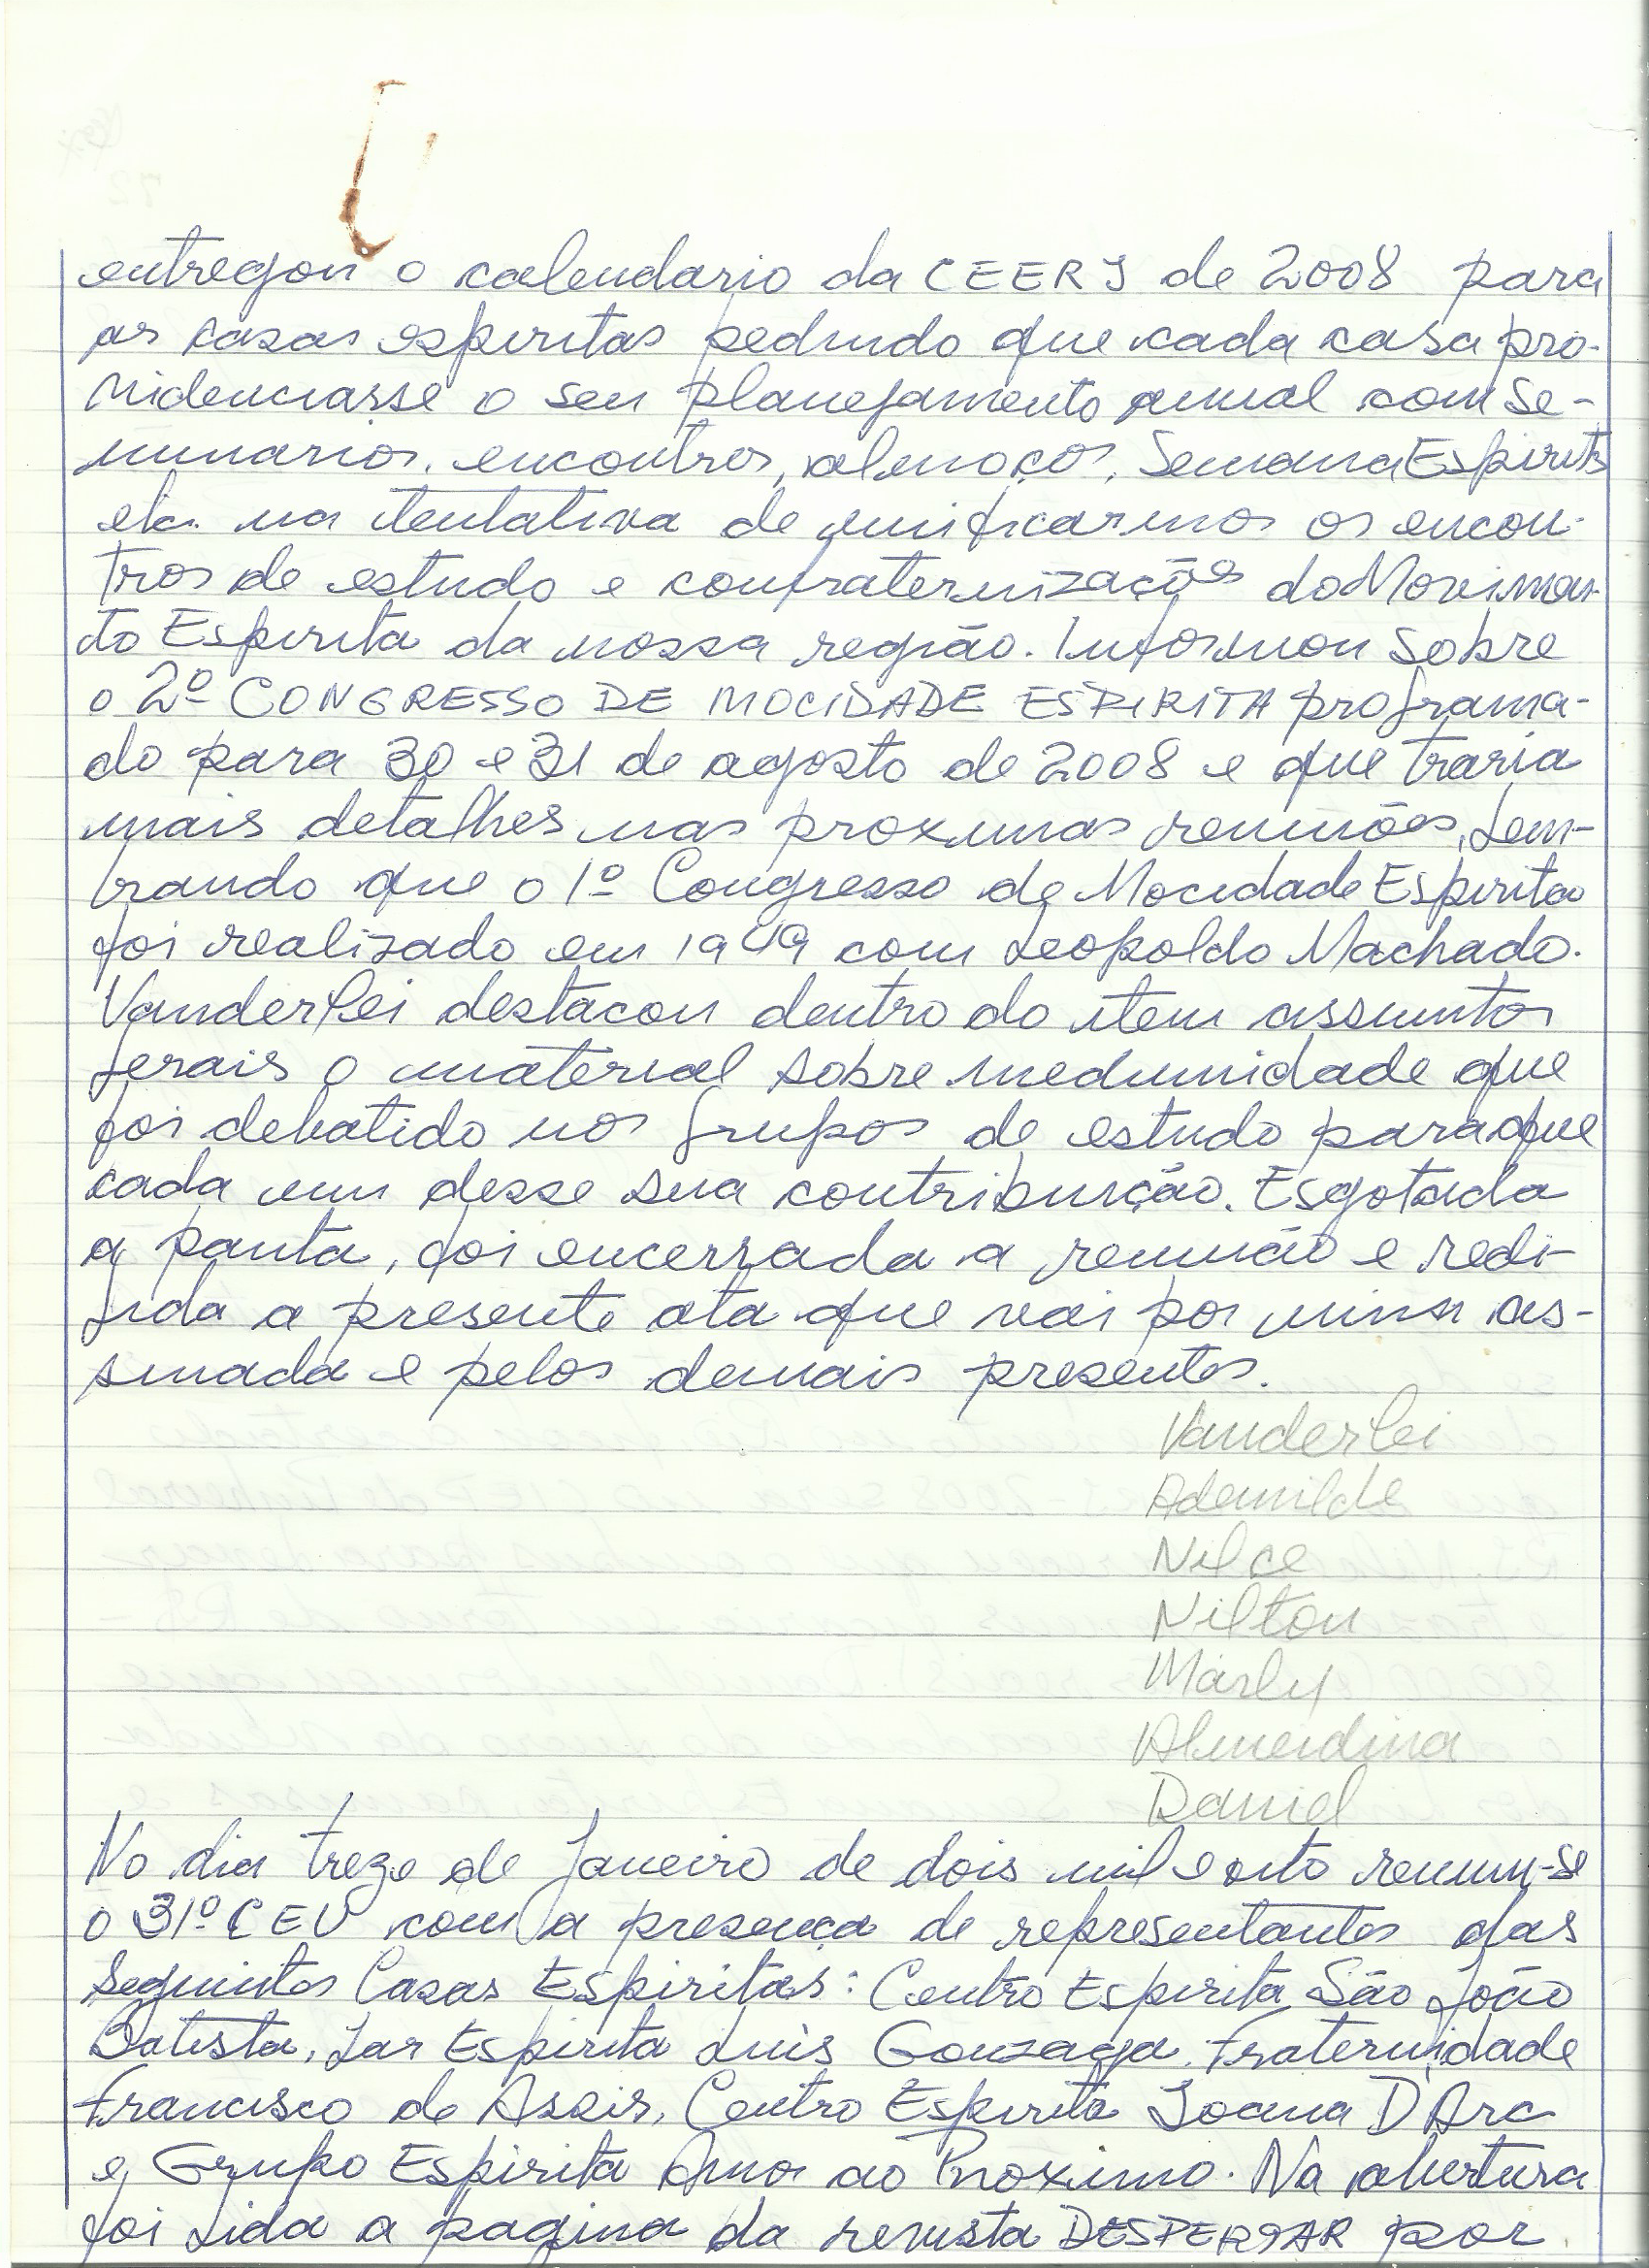 entregou o calendario da CEERJ de 2008 para
as casas espiritas pedindo que cada casa pro-
videnciasse o seu planejamento anual com Se-
minarios, encontros, almoços, Semana Espirita
etc. na tentativa de unificarmos os encon-
tros de estudo e confraternizações do Movimen-
to Espirita da nossa região. Informou sobre
o 2º CONGRESSO DE MOCIDADE ESPIRITA programa-
do para 30 e 31 de agosto de 2008 e que traria
mais detalhes nas proximas reuniões, Lem-
brando que o 1º Congresso de Mocidade Espirita
foi realizado em 1949 com Leopoldo Machado.
Vanderlei destacou dentro do item assuntos
gerais o material sobre mediunidade que
foi debatido nos grupos de estudo para que
cada um desse sua contribuição. Esgotada
a pauta, foi encerrada a reunião e redi-
gida a presente ata que vai por mim as-
sinada e pelos demais presentes.
Vanderlei
Ademilde
Nilce
Nilton
Marly
Almerdina
Daniel
No dia treze de Janeiro de dois mil e oito reuniu-se
o 31º CEU com a presença de representantes das
seguintes Casas Espiritas: Centro Espirita São João
Batista, Lar Espirita Luis Gonzaga, Fraternidade
Francisco de Assis, Centro Espirita Joana D Arc
e Grupo Espirita Amor ao Proximo. Na abertura
foi Lida a pagina da revista DESPERTAR por